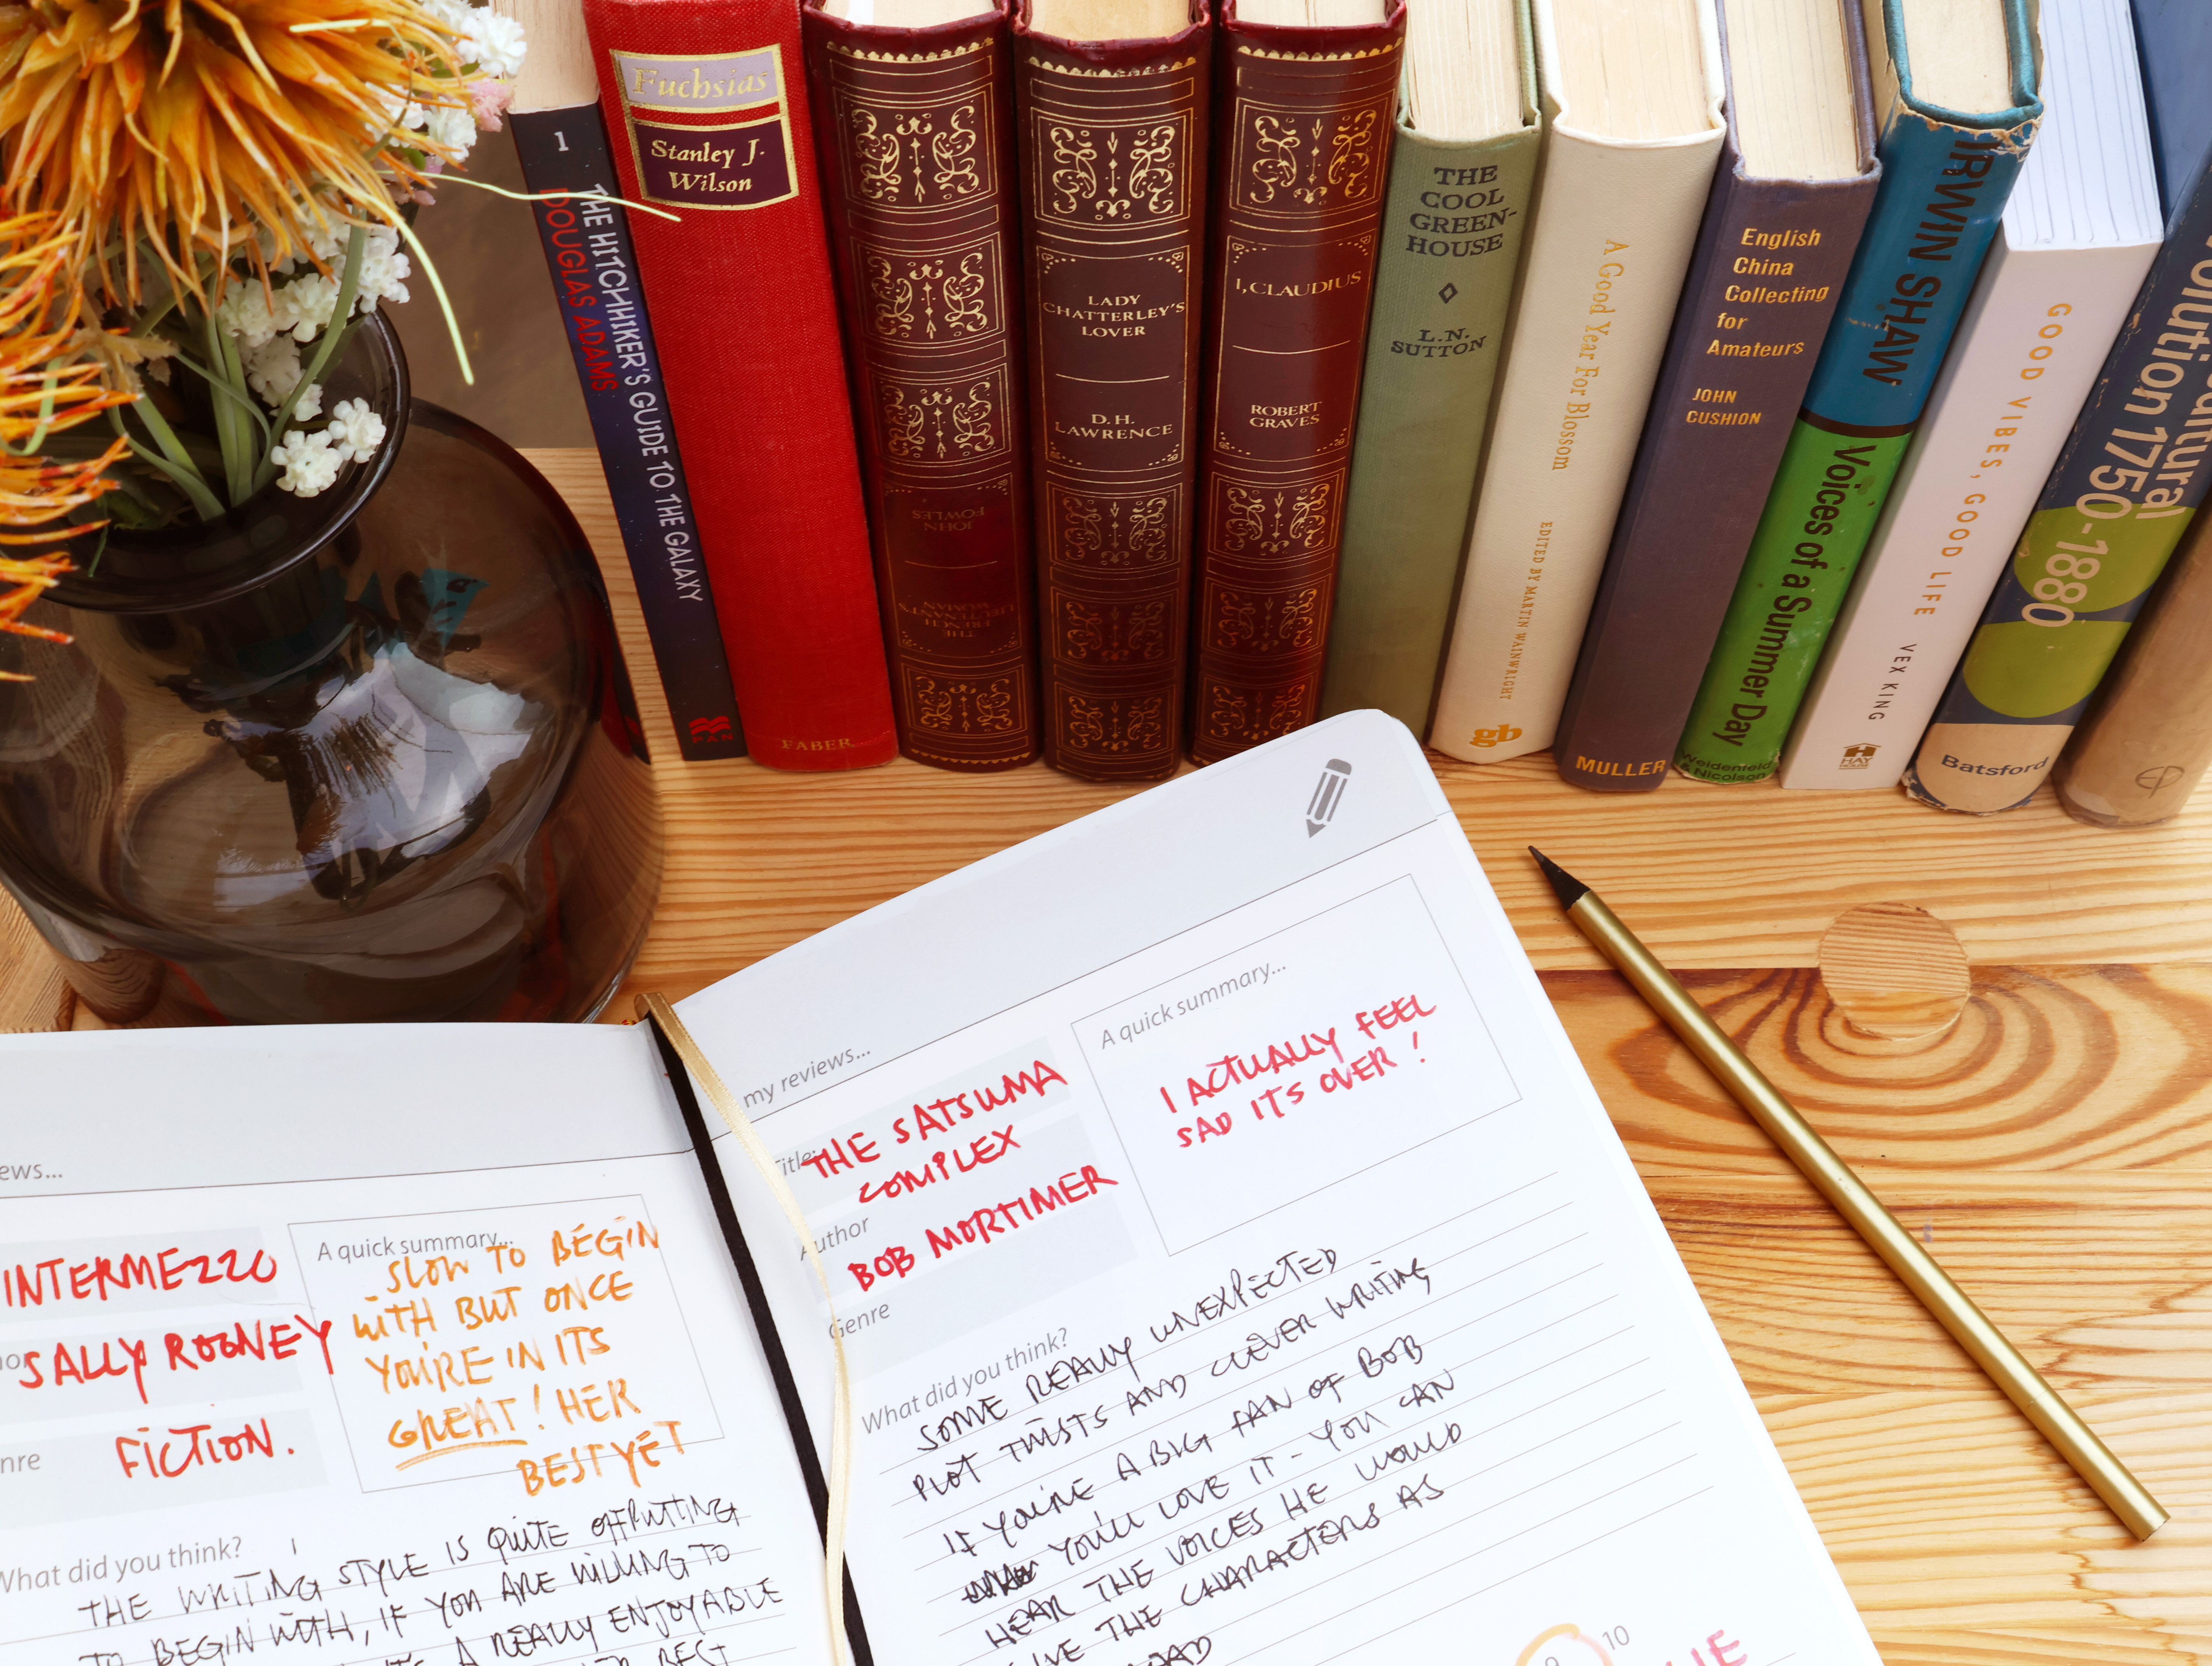 1
THE HITCHHIKER'S GUIDE TO THE GALAXY
DOUGLAS ADAMS
PAN
Fuchsias
Stanley J.
Wilson
FABER
JOHN
FOWLES
THE
FRENCH
LIEUTENANT'S
WOMAN
LADY
CHATTERLEY'S
LOVER
D.H.
LAWRENCE
I, CLAUDIUS
ROBERT
GRAVES
THE
COOL
GREEN-
HOUSE
L.N.
SUTTON
A Good Year For Blossom
EDITED BY MARTIN WAINWRIGHT
gb
English
China
Collecting
for
Amateurs
JOHN
CUSHION
MULLER
IRWIN SHAW
Voices of a Summer Day
Weidenfeld
& Nicolson
GOOD VIBES, GOOD LIFE
VEX KING
HAY
HOUSE
1750-1880
Batsford
ews...
INTERMEZZO
SALLY ROONEY
nre
FICTION.
A quick summary...
SLOW TO BEGIN
WITH BUT ONCE
YOU'RE IN ITS
GREAT! HER
BEST YET
What did you think?
THE WRITING STYLE IS QUITE OFFPUTTING
TO BEGIN WITH, IF YOU ARE WILLING TO
A REALLY ENJOYABLE
BEST
my reviews...
Title:
THE SATSUMA
COMPLEX
Author
BOB MORTIMER
Genre
A quick summary...
I ACTUALLY FEEL
SAD ITS OVER!
What did you think?
SOME REALLY UNEXPECTED
PLOT TWISTS AND CLEVER WRITING
IF YOU'RE A BIG FAN OF BOB
YOU'LL LOVE IT - YOU CAN
HEAR THE VOICES HE WOULD
GIVE THE CHARACTERS AS
9 10